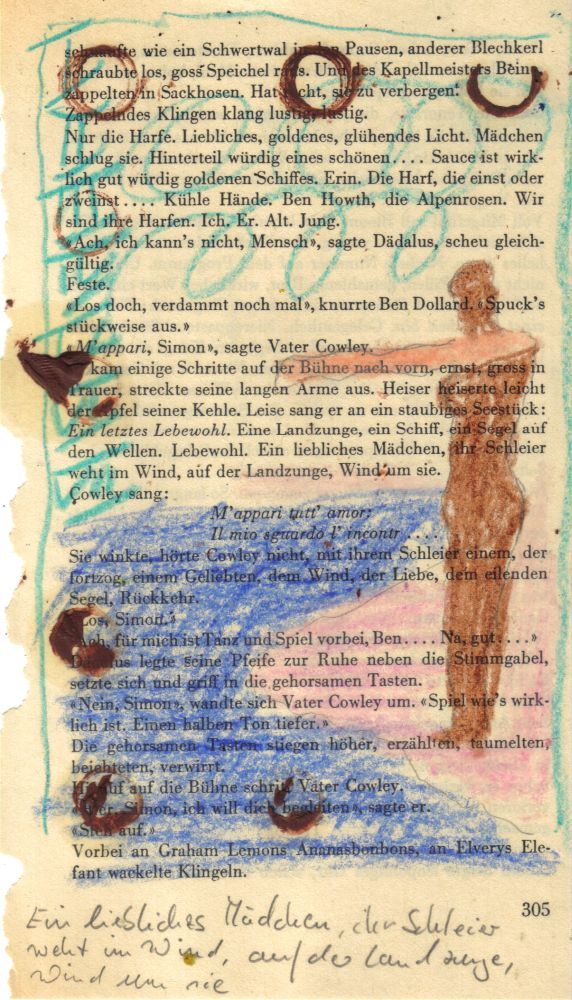 schnaufte wie ein Schwertwal in den Pausen, anderer Blechkerl
schraubte los, goss Speichel raus. Und des Kapellmeisters Beine
zappelten in Sackhosen. Hat recht, sie zu verbergen.
Zappelndes Klingen klang lustig, lustig.
Nur die Harfe. Liebliches, goldenes, glühendes Licht. Mädchen
schlug sie. Hinterteil würdig eines schönen.... Sauce ist wirk-
lich gut würdig goldenen Schiffes. Erin. Die Harf, die einst oder
zweinst.... Kühle Hände. Ben Howth, die Alpenrosen. Wir
sind ihre Harfen. Ich. Er. Alt. Jung.
«Ach, ich kann's nicht, Mensch», sagte Dädalus, scheu gleich-
gültig.
Feste.
«Los doch, verdammt noch mal», knurrte Ben Dollard. «Spuck's
stückweise aus.»
«M'appari, Simon», sagte Vater Cowley.
kam einige Schritte auf der Bühne nach vorn, ernst, gross in
Trauer, streckte seine langen Arme aus. Heiser heiserte leicht
der Apfel seiner Kehle. Leise sang er an ein staubiges Seestück:
Ein letztes Lebewohl. Eine Landzunge, ein Schiff, ein Segel auf
den Wellen. Lebewohl. Ein liebliches Mädchen, ihr Schleier
weht im Wind, auf der Landzunge, Wind um sie.
Cowley sang:
M'appari tutt' amor:
Il mio sguardo l' incontr....
Sie winkte, hörte Cowley nicht, mit ihrem Schleier einem, der
fortzog, einem Geliebten, dem Wind, der Liebe, dem eilenden
Segel, Rückkehr.
«Los, Simon.»
«Ach, für mich ist Tanz und Spiel vorbei, Ben.... Na, gut....»
Dädalus legte seine Pfeife zur Ruhe neben die Stimmgabel,
setzte sich und griff in die gehorsamen Tasten.
«Nein, Simon», wandte sich Vater Cowley um. «Spiel wie's wirk-
lich ist. Einen halben Ton tiefer.»
Die gehorsamen Tasten stiegen höher, erzählten, taumelten,
beichteten, verwirrt.
Hinauf auf die Bühne schritt Vater Cowley.
Simon, ich will dich begleiten», sagte er.
«Steh auf.»
Vorbei an Graham Lemons Ananasbonbons, an Elverys Ele-
fant wackelte Klingeln.
305
Ein liebliches Mädchen, der Schleier
weht im Wind, auf der Landzunge,
Wind um sie